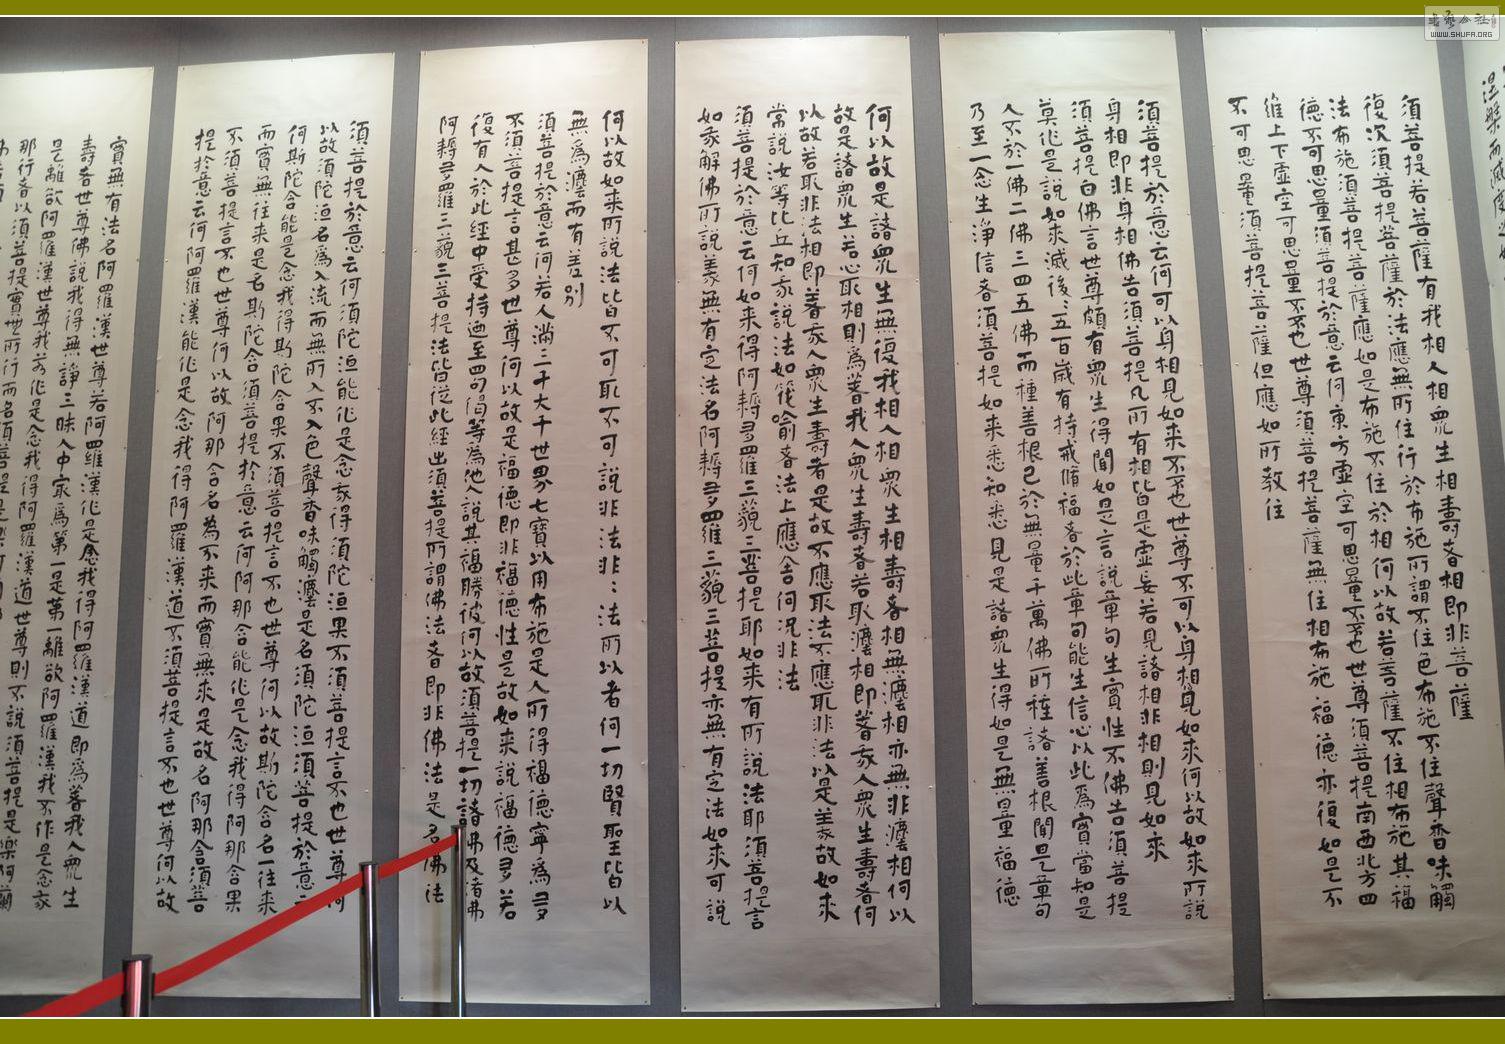 涅槃而滅度之
須菩提若菩薩有我相人相衆生相壽者相即非菩薩
復次須菩提菩薩於法應無所住行於布施所謂不住色布施不住聲香味觸
法布施須菩提菩薩應如是布施不住於相何以故若菩薩不住相布施其福
德不可思量須菩提於意云何東方虛空可思量不不也世尊須菩提南西北方四
維上下虛空可思量不不也世尊須菩提菩薩無住相布施福德亦復如是不
不可思量須菩提菩薩但應如所教住
須菩提於意云何可以身相見如来不不也世尊不可以身相見如来何以故如来所說
身相即非身相佛告須菩提凡所有相皆是虛妄若見諸相非相則見如来
須菩提白佛言世尊頗有衆生得聞如是言說章句生實性不佛告須菩提
莫作是說如来滅後:五百歲有持戒脩福者於此章句能生信心以此爲實當知是
人不於一佛二佛三四五佛而種善根已於無量千萬佛所種諸善根聞是章句
乃至一念生淨信者須菩提如来悉知悉見是諸衆生得如是無量福德
何以故是諸衆生無復我相人相衆生相壽者相無灋相亦無非灋相何以
故是諸衆生若心取相則爲著我人衆生壽者若取灋相即著我人衆生壽者何
以故若取非法相即著我人衆生壽者是故不應取法不應取非法以是義故如来
常說汝等比丘知我說法如筏喻者法上應舍何況非法
須菩提於意云何如来得阿耨多羅三藐三菩提耶如来有所說法耶須菩提言
如我解佛所說義無有定法名阿耨多羅三藐三菩提亦無有定法如来可說
何以故如来所說法皆不可取不可說非法非:法所以者何一切賢聖皆以
無爲灋而有差別
須菩提於意云何若人滿三千大千世界七寶以用布施是人所得福德寧爲多
不須菩提言甚多世尊何以故是福德即非福德性是故如来說福德多若
復有人於此經中受持迺至四句偈等為他人說其福勝彼何以故須菩提一切諸佛及諸佛
阿耨多羅三藐三菩提法皆從此經出須菩提所謂佛法者即非佛法是名佛法
須菩提於意云何須陀洹能作是念我得須陀洹果不須菩提言不也世尊何
以故須陀洹名爲入流而無所入不入色聲香味觸灋是名須陀洹須菩提於意云
何斯陀含能是念我得斯陀含果不須菩提言不也世尊何以故斯陀含名一往来
而實無往来是名斯陀含須菩提於意云何阿那含能作是念我得阿那含果
不須菩提言不也世尊何以故阿那含名為不来而實無来是故名阿那含須菩
提於意云何阿羅漢能作是念我得阿羅漢道不須菩提言不也世尊何以故
實無有法名阿羅漢世尊若阿羅漢作是念我得阿羅漢道即爲著我人衆生
壽者世尊佛說我得無諍三昧人中㝡爲第一是第一離欲阿羅漢我不作是念我
是離欲阿羅漢世尊我若作是念我得阿羅漢道世尊則不說須菩提是樂阿蘭
那行者以須菩提實無所行而名須菩提是樂阿
WWW.SHUFA.ORG